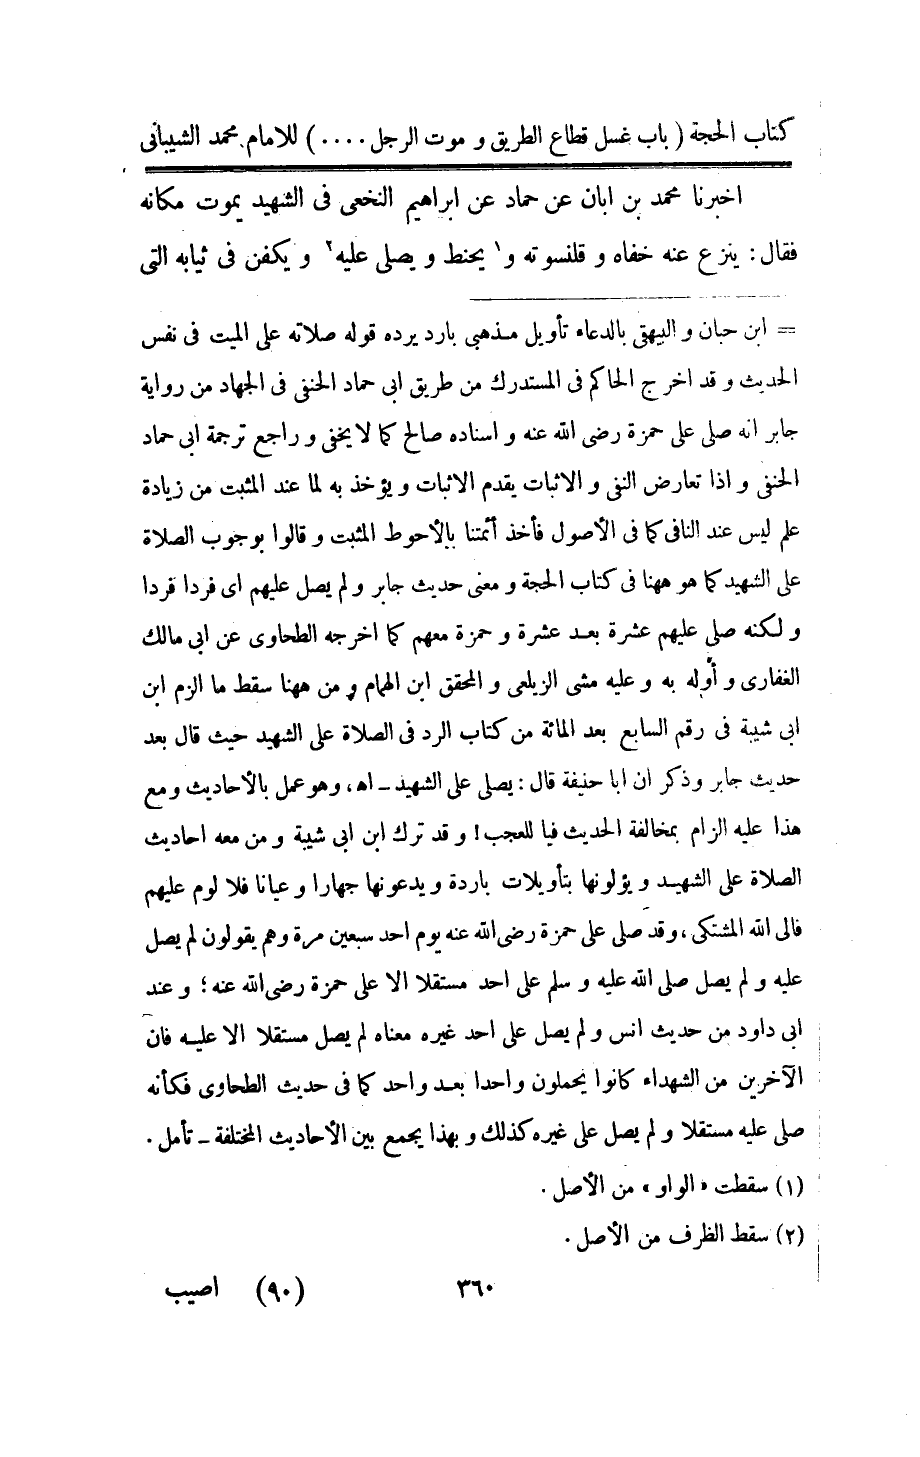 كتاب الحجة ( باب غسل قطاع الطريق و موت الرجل .... ) للامام محمد الشيبانى
اخبرنا محمد بن ابان عن حماد عن ابراهيم النخعى فى الشهيد يموت مكانه
فقال : ينزع عنه خفاه و قلنسوته و١ يحنط و يصلى عليه٢ و يكفن فى ثيابه التى
= ابن حبان و البيهقى بالدعاء تأويل مذهبى بارد يرده قوله صلاته على الميت فى نفس
الحديث و قد اخرج الحاكم فى المستدرك من طريق ابى حماد الحنفى فى الجهاد من رواية
جابر انه صلى على حمزة رضى الله عنه و اسناده صالح كما لا يخفى و راجع ترجمة ابى حماد
الحنفى و اذا تعارض النفى و الاثبات يقدم الاثبات و يؤخذ به لما عند المثبت من زيادة
علم ليس عند النافى كما فى الأصول فأخذ أئمتنا بالأحوط المثبت و قالوا بوجوب الصلاة
على الشهيد كما هو ههنا فى كتاب الحجة و معنى حديث جابر و لم يصل عليهم اى فردا فردا
و لكنه صلى عليهم عشرة بعد عشرة و حمزة معهم كما اخرجه الطحاوى عن ابى مالك
الغفارى و أوله به و عليه مشى الزيلعى و المحقق ابن الهمام و من ههنا سقط ما الزم ابن
ابى شيبة فى رقم السابع بعد المائة من كتاب الرد فى الصلاة على الشهيد حيث قال بعد
حديث جابر وذكر ان ابا حنيفة قال : يصلى على الشهيد ـ اه ، وهو عمل بالأحاديث و مع
هذا عليه الزام بمخالفة الحديث فيا للعجب ! و قد ترك ابن ابى شيبة و من معه احاديث
الصلاة على الشهيد و يؤولونها بتأويلات باردة و يدعونها جهارا و عيانا فلا لوم عليهم
فالى الله المشتكى ، وقد صلى على حمزة رضى الله عنه يوم احد سبعين مرة وهم يقولون لم يصل
عليه و لم يصل صلى الله عليه و سلم على احد مستقلا الا على حمزة رضى الله عنه ؛ و عند
ابى داود من حديث انس و لم يصل على احد غيره معناه لم يصل مستقلا الا عليه فان
الآخرين من الشهداء كانوا يحملون واحدا بعد واحد كما فى حديث الطحاوى فكأنه
صلى عليه مستقلا و لم يصل على غيره كذلك و بهذا يجمع بين الأحاديث المختلفة ـ تأمل .
(١) سقطت « الواو » من الأصل .
(٢) سقط الظرف من الأصل .
٣٦٠ (٩٠) اصيب